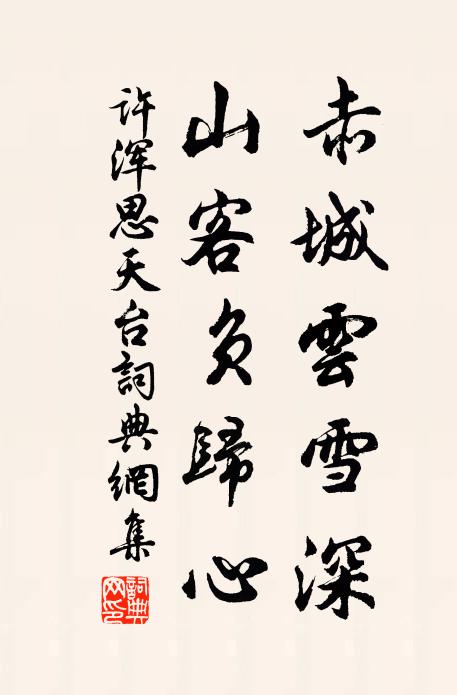 赤城雲雪深
山客負歸心
许渾思天台詞典網集
詞典
网印